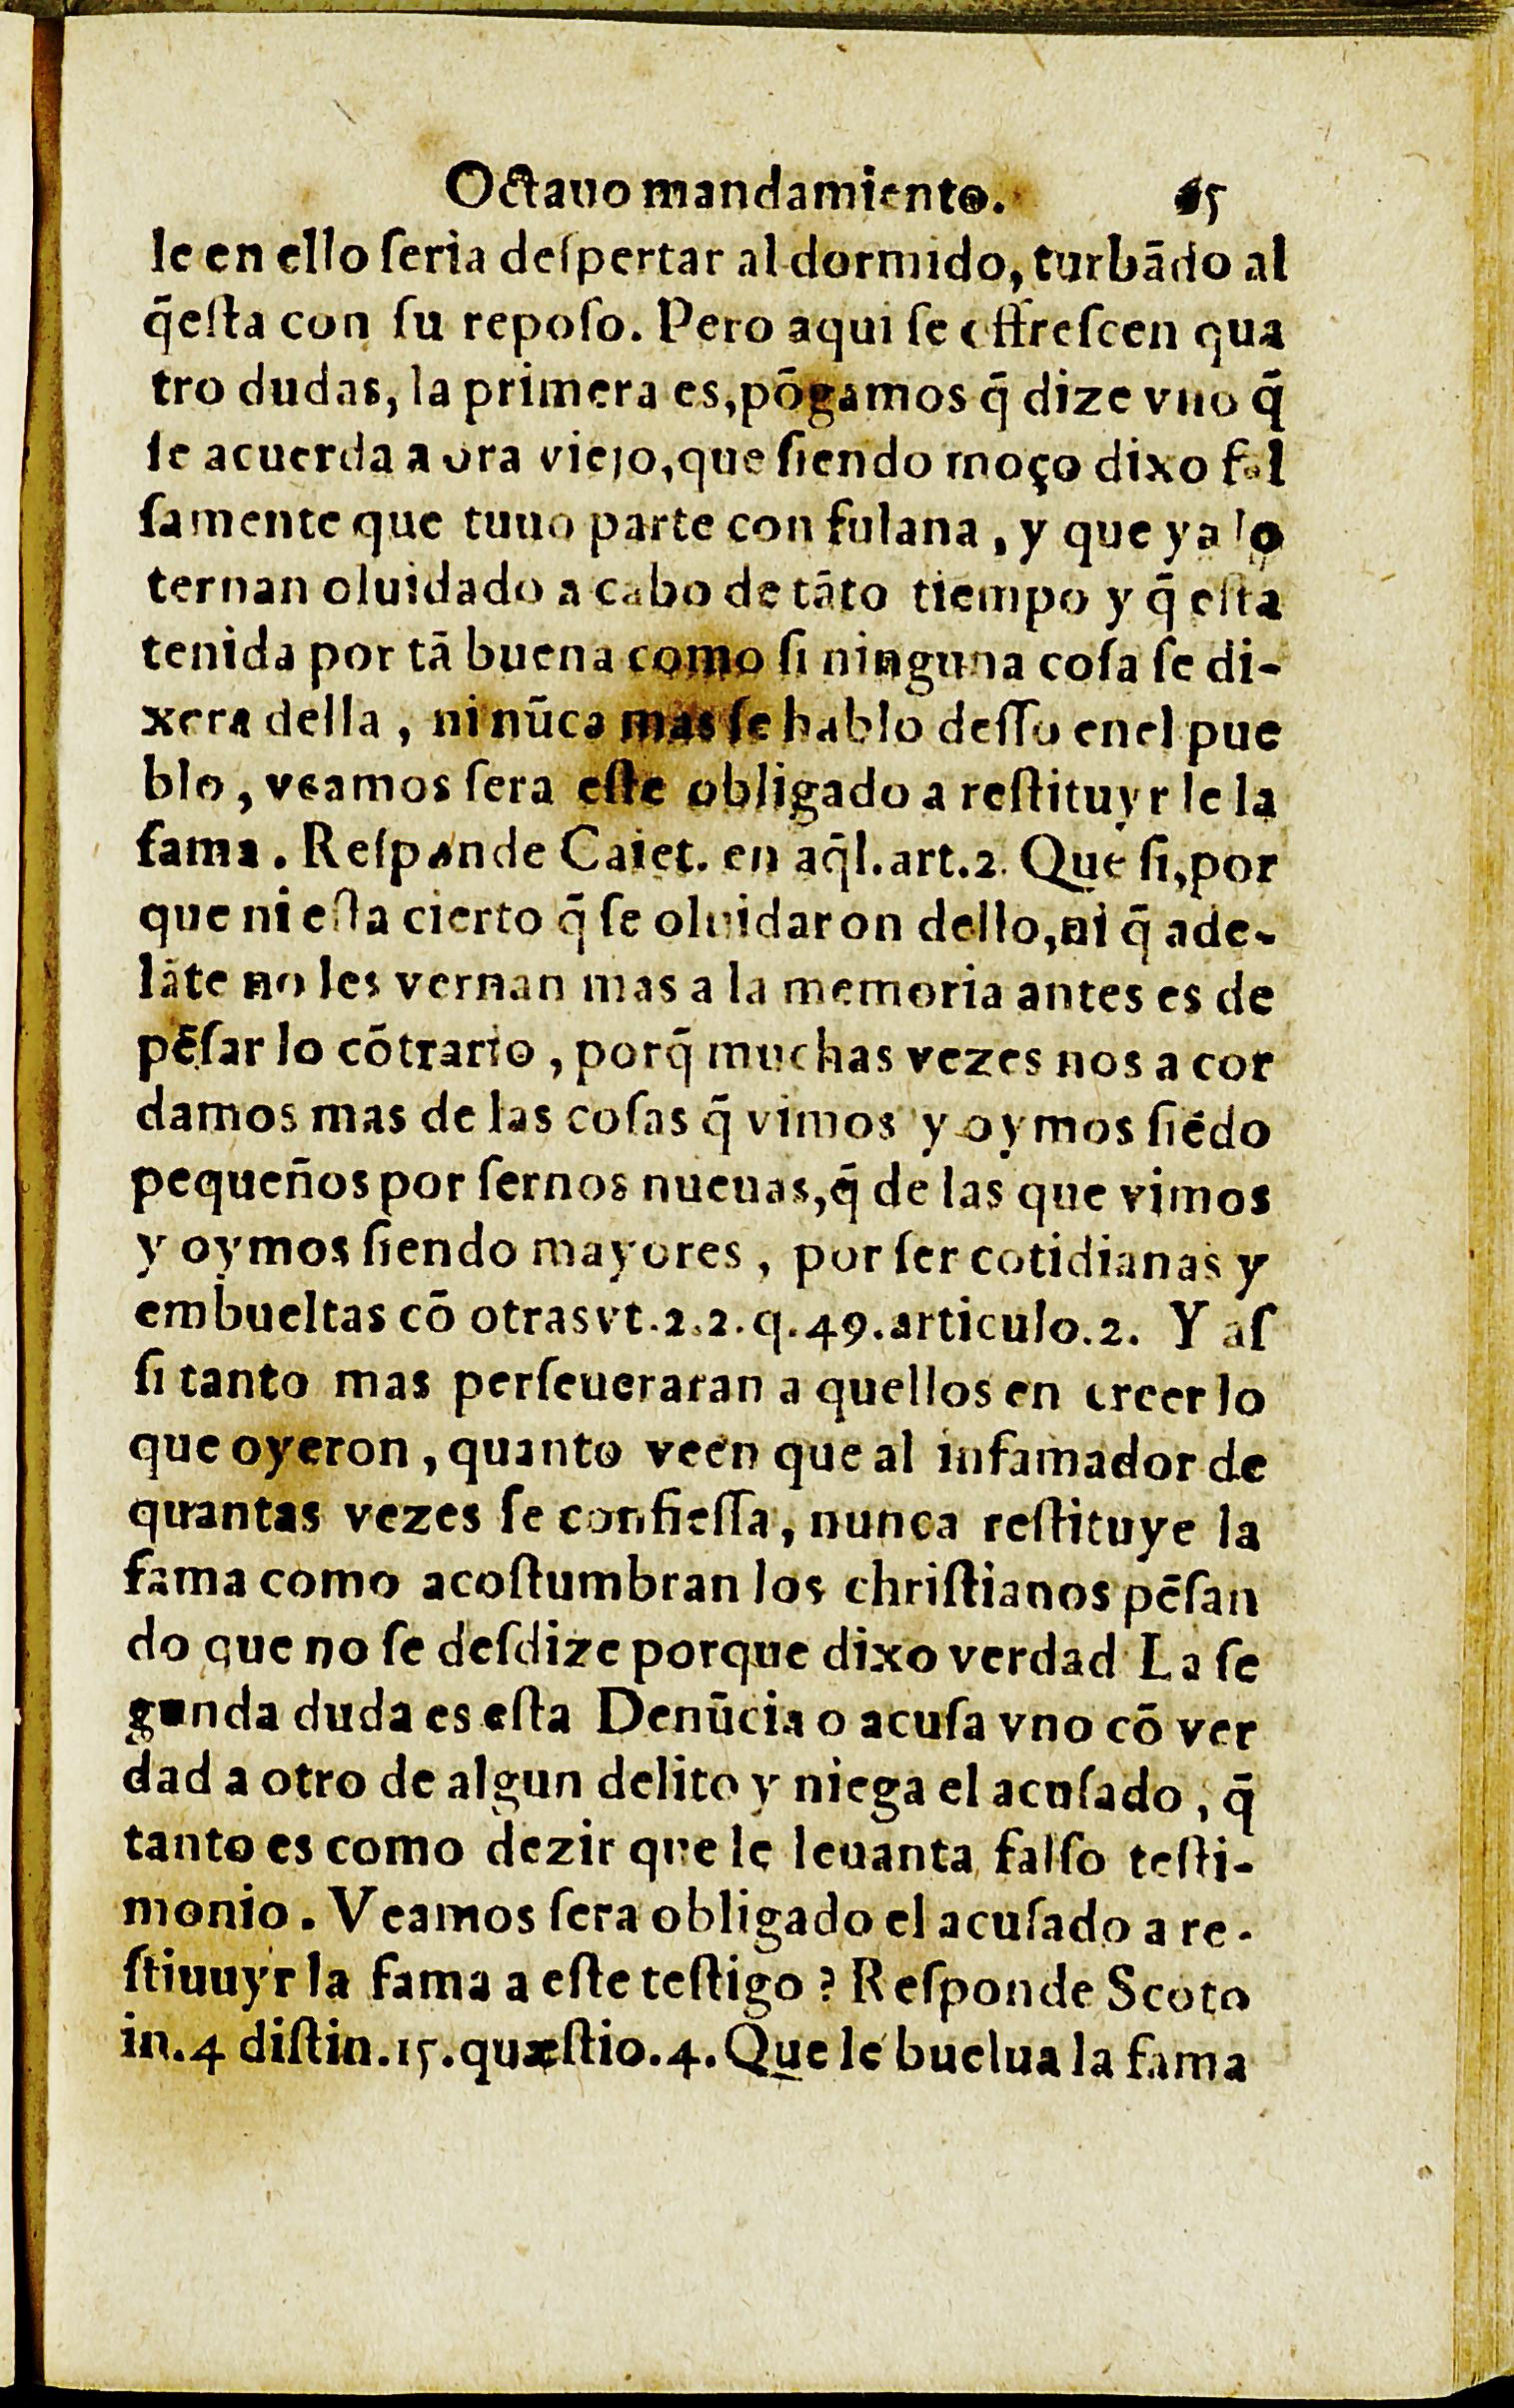 Octauo mandamiento. 65
le en ello ſeria deſpertar al dormido, turbādo al
q̄eſta con ſu repoſo. Pero aqui ſe offreſcen qua
tro dudas, la primera es, pōgamos q̄ dize vno q̄
ſe acuerda a ora viejo, que ſiendo moço dixo fal
ſamente que tuuo parte con fulana, y que ya lo
ternan oluidado a cabo de tāto tiempo y q̄ eſta
tenida por tā buena como ſi ninguna coſa ſe di-
xera della, ni nūca mas ſe hablo deſſo enel pue
blo, veamos ſera eſte obligado a reſtituyr le la
fama. Reſponde Caiet. en aq̄l. art. 2. Que ſi, por
que ni eſta cierto q̄ ſe oluidaron dello, ni q̄ ade-
lāte no les vernan mas a la memoria antes es de
pēſar lo cōtrario, porq̄ muchas vezes nos a cor
damos mas de las coſas q̄ vimos y oymos ſiēdo
pequeños por ſernos nueuas, q̄ de las que vimos
y oymos ſiendo mayores, por ſer cotidianas y
embueltas cō otras vt. 2. 2. q. 49. articulo. 2. Y aſ
ſi tanto mas perſeueraran a quellos en creer lo
que oyeron, quanto veen que al infamador de
quantas vezes ſe confieſſa, nunca reſtituye la
fama como acoſtumbran los chriſtianos pēſan
do que no ſe deſdize porque dixo verdad La ſe
gunda duda es eſta Denūcia o acuſa vno cō ver
dad a otro de algun delito y niega el acuſado, q̄
tanto es como dezir que le leuanta falſo teſti-
monio. Veamos ſera obligado el acuſado a re-
ſtiuuyr la fama a eſte teſtigo? Reſponde Scoto
in. 4 diſtin. 15. quæſtio. 4. Que le buelua la fama